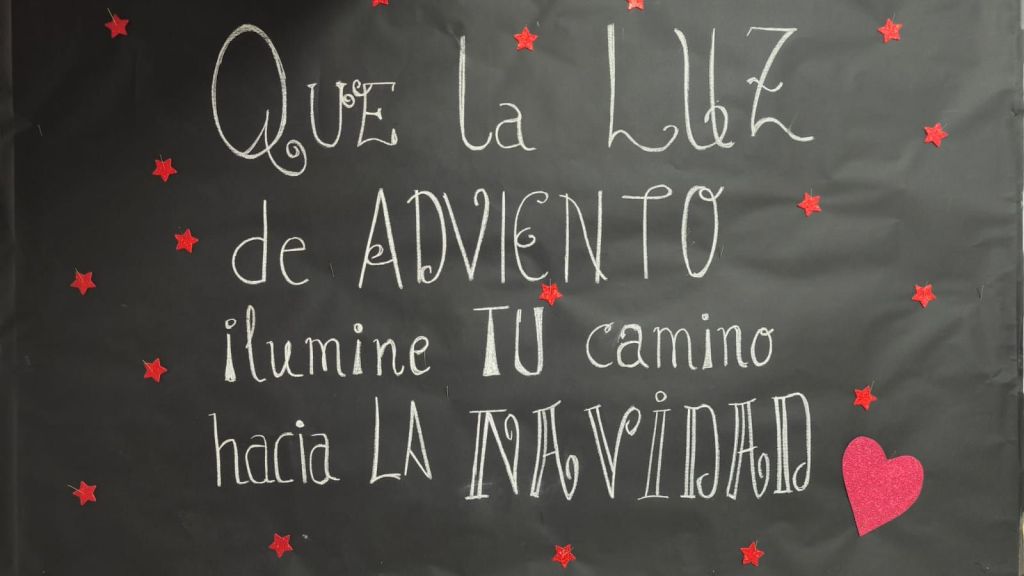 Que la LUZ
de ADVIENTO
ilumine TU camino
hacia LA NAVIDAD